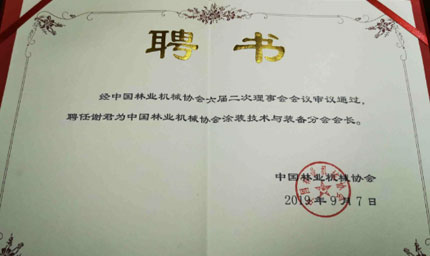 聘书
经中国林业机械协会六届二次理事会会议审议通过，
聘任谢君为中国林业机械协会涂装技术与装备分会会长。
中国林业机械协会
2019年9月7日